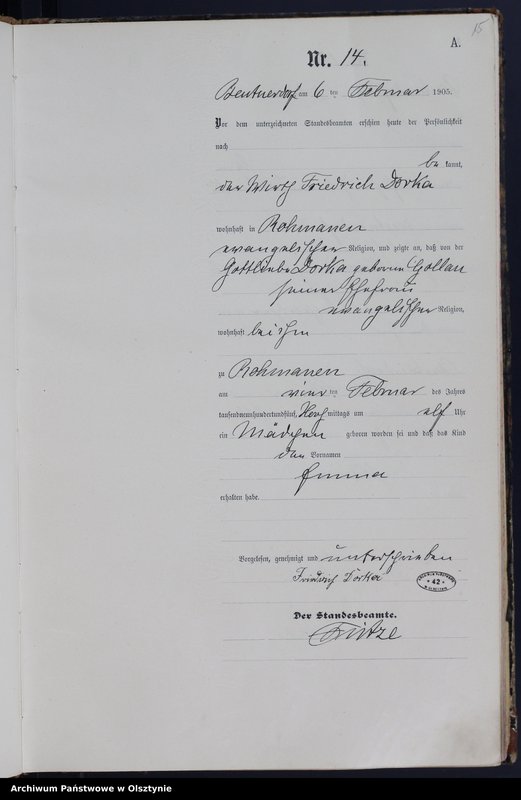 15
A.
Nr. 14.
Beutnerdorf am 6 ten Februar 1905.
Vor dem unterzeichneten Standesbeamten erschien heute der Persönlichkeit
nach
be kannt,
der Wirth Friedrich Dorka
wohnhaft in Rohmanen
evangelischer Religion, und zeigte an, daß von der
Gottliebe Dorka geborene Gollan
seiner Ehefrau
evangelischer Religion,
wohnhaft bei ihm
zu Rohmanen
am vier ten Februar des Jahres
tausendneunhundertundfünf, Nach mittags um elf Uhr
ein Mädchen geboren worden sei und daß das Kind
den Vornamen
Emma
erhalten habe.
Vorgelesen, genehmigt und unterschrieben
Friedrich Dorka
42
Der Standesbeamte.
Archiwum Państwowe w Olsztynie